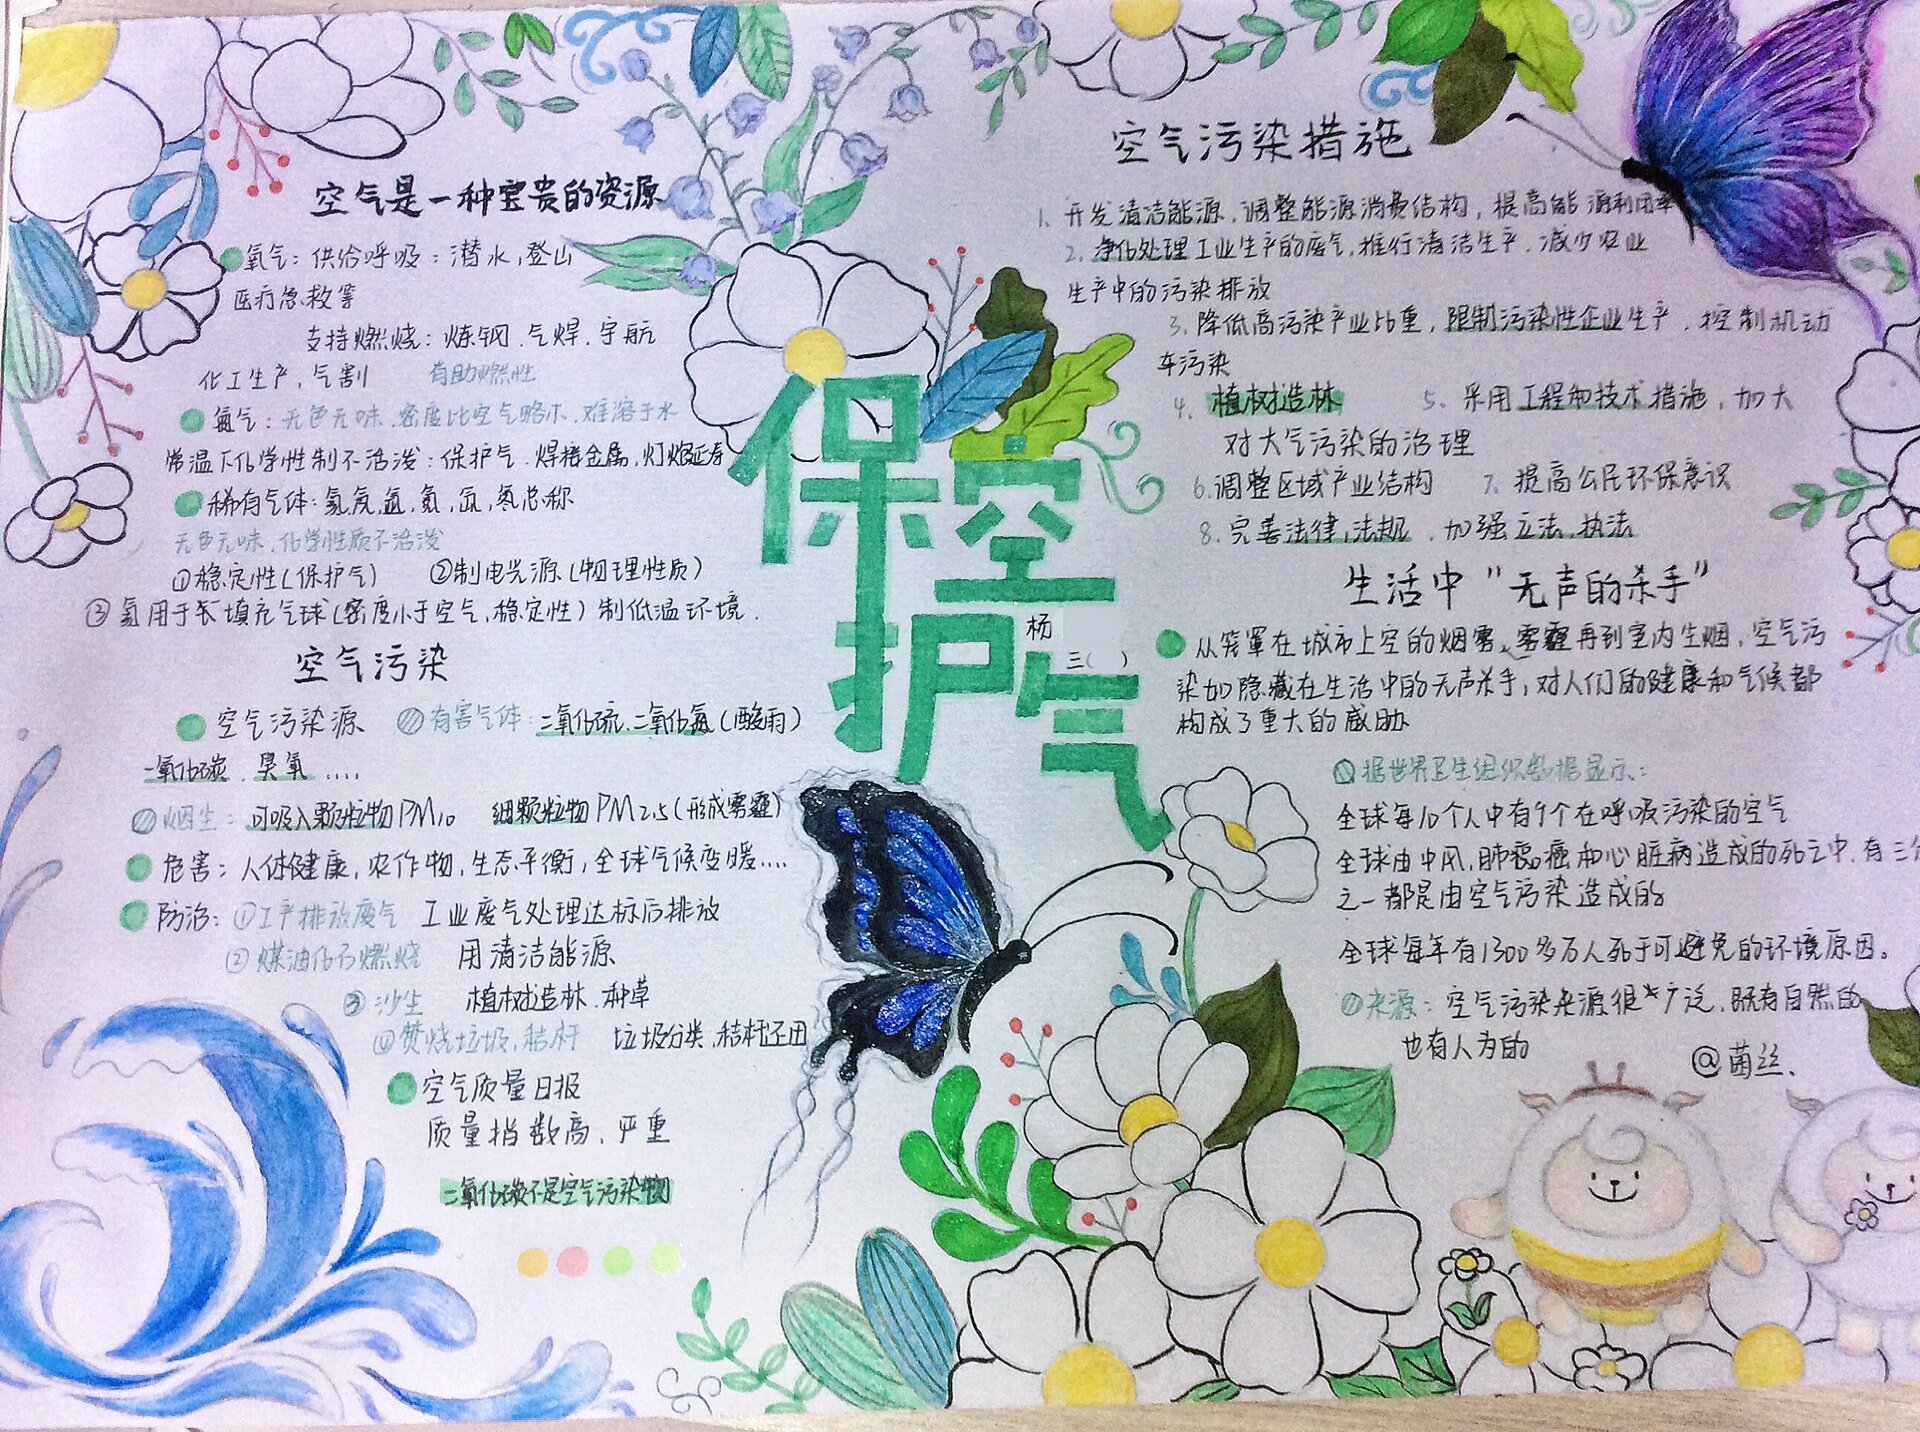 空气是一种宝贵的资源
氧气：供给呼吸：潜水，登山
医疗急救等
支持燃烧：炼钢．气焊．宇航
化工生产，气割 有助燃性
氮气：无色无味．密度比空气略小．难溶于水
常温下化学性制不活泼：保护气．焊接金属，灯炮延寿
稀有气体：氦，氖，氩，氪，氙，氡总称
无色无味．化学性质不活泼
①稳定性（保护气） ②制电光源（物理性质）
③氦用于填充气球（密度小于空气，稳定性）制低温环境．
空气污染
空气污染源 有害气体：二氧化硫．二氧化氮（酸雨）
一氧化碳．臭氧 ....
烟尘：可吸入颗粒物PM10 细颗粒物PM2.5（形成雾霾）
危害：人体健康，农作物，生态平衡，全球气候变暖....
防治：①工产排放废气 工业废气处理达标后排放
②煤油化石燃烧 用清洁能源
③沙尘 植树造林．种草
④焚烧垃圾，秸秆 垃圾分类，秸秆还田
空气质量日报
质量指数高，严重
二氧化碳不是空气污染物
保护空气
杨
三（ ）
空气污染措施
1．开发清洁能源．调整能源消费结构，提高能源利用率
2．净化处理工业生产的废气，推行清洁生产．减少农业
生产中的污染排放
3．降低高污染产业比重，限制污染性企业生产．控制机动
车污染
4．植树造林 5．采用工程和技术措施，加大
对大气污染的治理
6．调整区域产业结构 7．提高公民环保意识
8．完善法律，法规．加强立法，执法
生活中“无声的杀手”
从笼罩在城市上空的烟雾，雾霾再到室内生烟，空气污
染如隐藏在生活中的无声杀手，对人们的健康和气候都
构成了重大的威胁
据世界卫生组织数据显示：
全球每10个人中有9个在呼吸污染的空气
全球由中风，肺癌和心脏病造成的死亡中．有三分
之一都是由空气污染造成的
全球每年有1300多万人死于可避免的环境原因。
来源：空气污染来源很广泛．既有自然的
也有人为的
@菌丝．